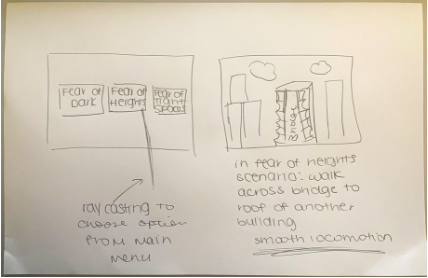 Fear of
Dark
Fear of
Heights
Fear of
Tight
Spaces
ray casting to
choose option
from main
menu
Bridge
in fear of heights
scenario: walk
across bridge to
roof of another
building
smooth locomotion